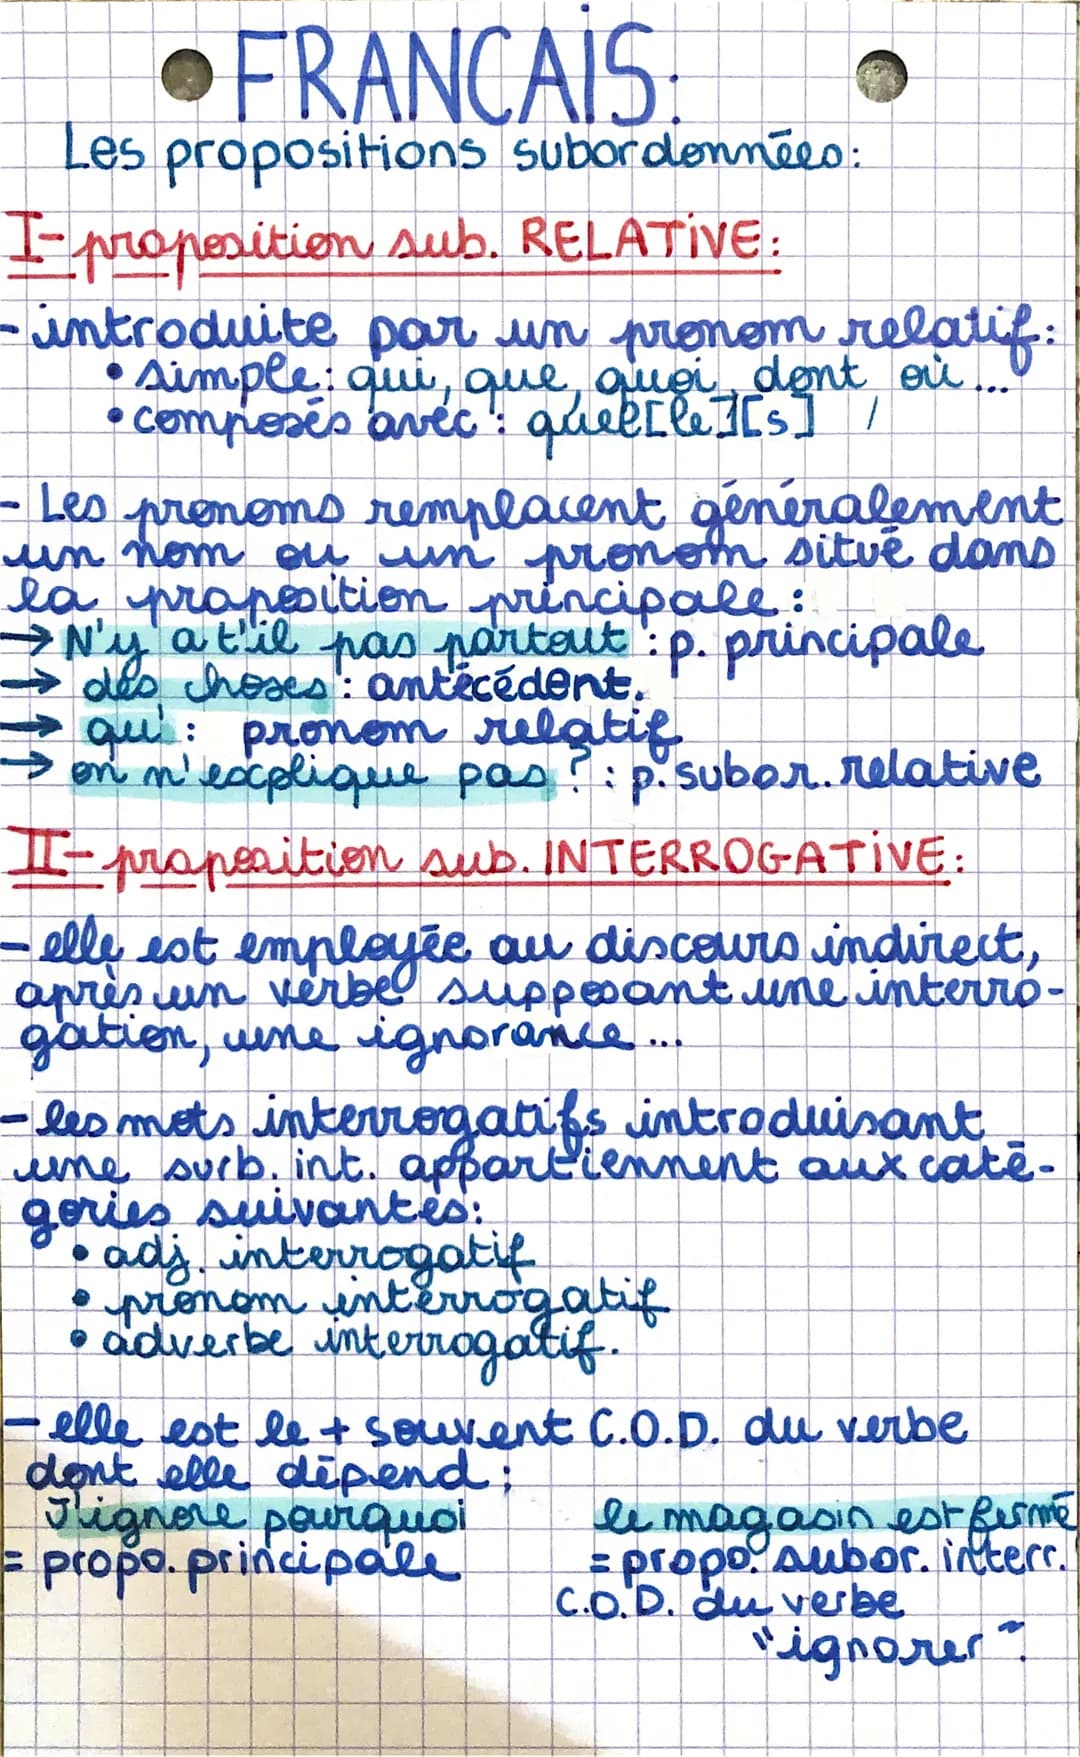 FRANCAIS:
Les propositions subordonnées:
I- proposition sub. RELATIVE:
- introduite par un pronom relatif:
• simple: qui, que, quoi, dont, où...
• composés avec: quel[le][s] /
- Les pronoms remplacent généralement
un nom ou un pronom situé dans
la proposition principale:
→ N'y a t'il pas partout : p. principale
→ des choses : antécédent.
→ qu' : pronom relatif
→ on n'explique pas ? : p. subor. relative
II- proposition sub. INTERROGATIVE:
- elle est employée au discours indirect,
après un verbe supposant une interro-
gation, une ignorance...
- les mots interrogatifs introduisant
une surb. int. appartiennent aux caté-
gories suivantes:
• adj. interrogatif
• pronom interrogatif
• adverbe interrogatif.
- elle est le + souvent C.O.D. du verbe
dont elle dépend:
J'ignore pourquoi le magasin est fermé
= propo. principale = propo. subor. interr.
C.O.D. du verbe
"ignorer".